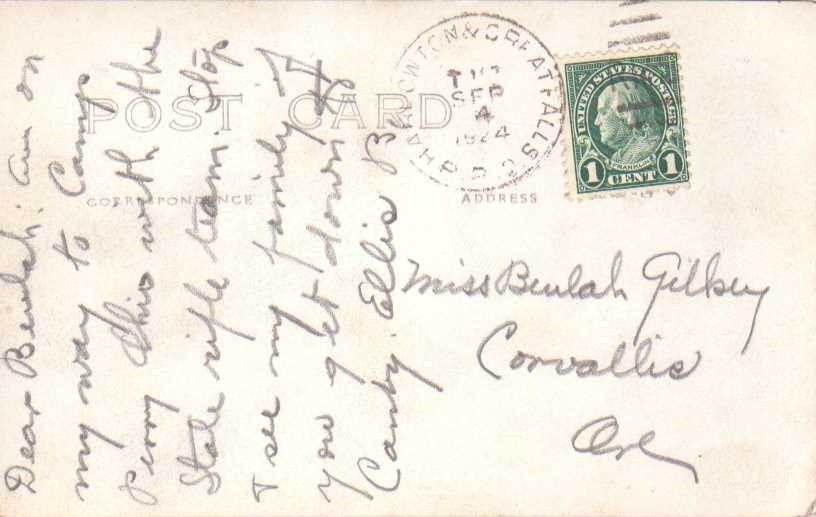 POST CARD
CORRESPONDENCE
ADDRESS
HARLOWTON & GREAT FALLS
SEP
4
1924
R.P.O.
UNITED STATES POSTAGE
FRANKLIN
1 CENT 1
Dear Beulah: Am on
my way to Camp
Perry Ohio with the
State rifle team. Stop
& see my family if
you get down to
Canby. Ellis B.
Miss Beulah Gilkey
Corvallis
Ore